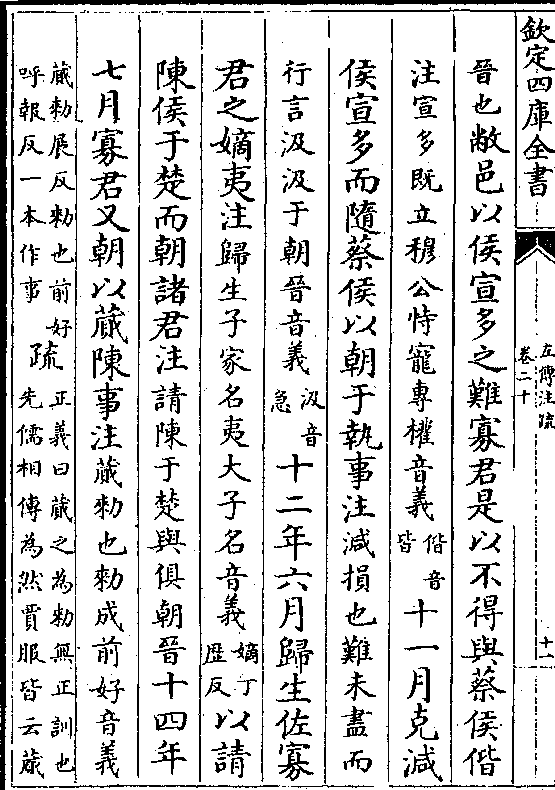 欽定四庫全書
左傳注疏
卷二十
十一
晉也敝邑以侯宣多之難寡君是以不得與蔡侯偕
注宣多既立穆公恃寵專權音義
偕音
皆
十一月克減
侯宣多而隨蔡侯以朝于執事注減損也難未盡而
行言汲汲于朝晉音義
汲音
急
十二年六月歸生佐寡
君之嫡夷注歸生子家名夷大子名音義
嫡丁
歴反
以請
陳侯于楚而朝諸君注請陳于楚與俱朝晉十四年
七月寡君又朝以蕆陳事注蕆勑也勑成前好音義
蕆勑展反勑也前好
呼報反一本作事
疏
正義曰蕆之為勑無正訓也
先儒相傳為然賈服皆云蕆